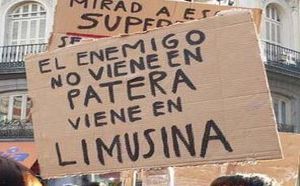 MIRAD A ES
SUPER
SE
EL ENEMIGO
NO VIENE EN
PATERA
VIENE EN
LIMUSINA